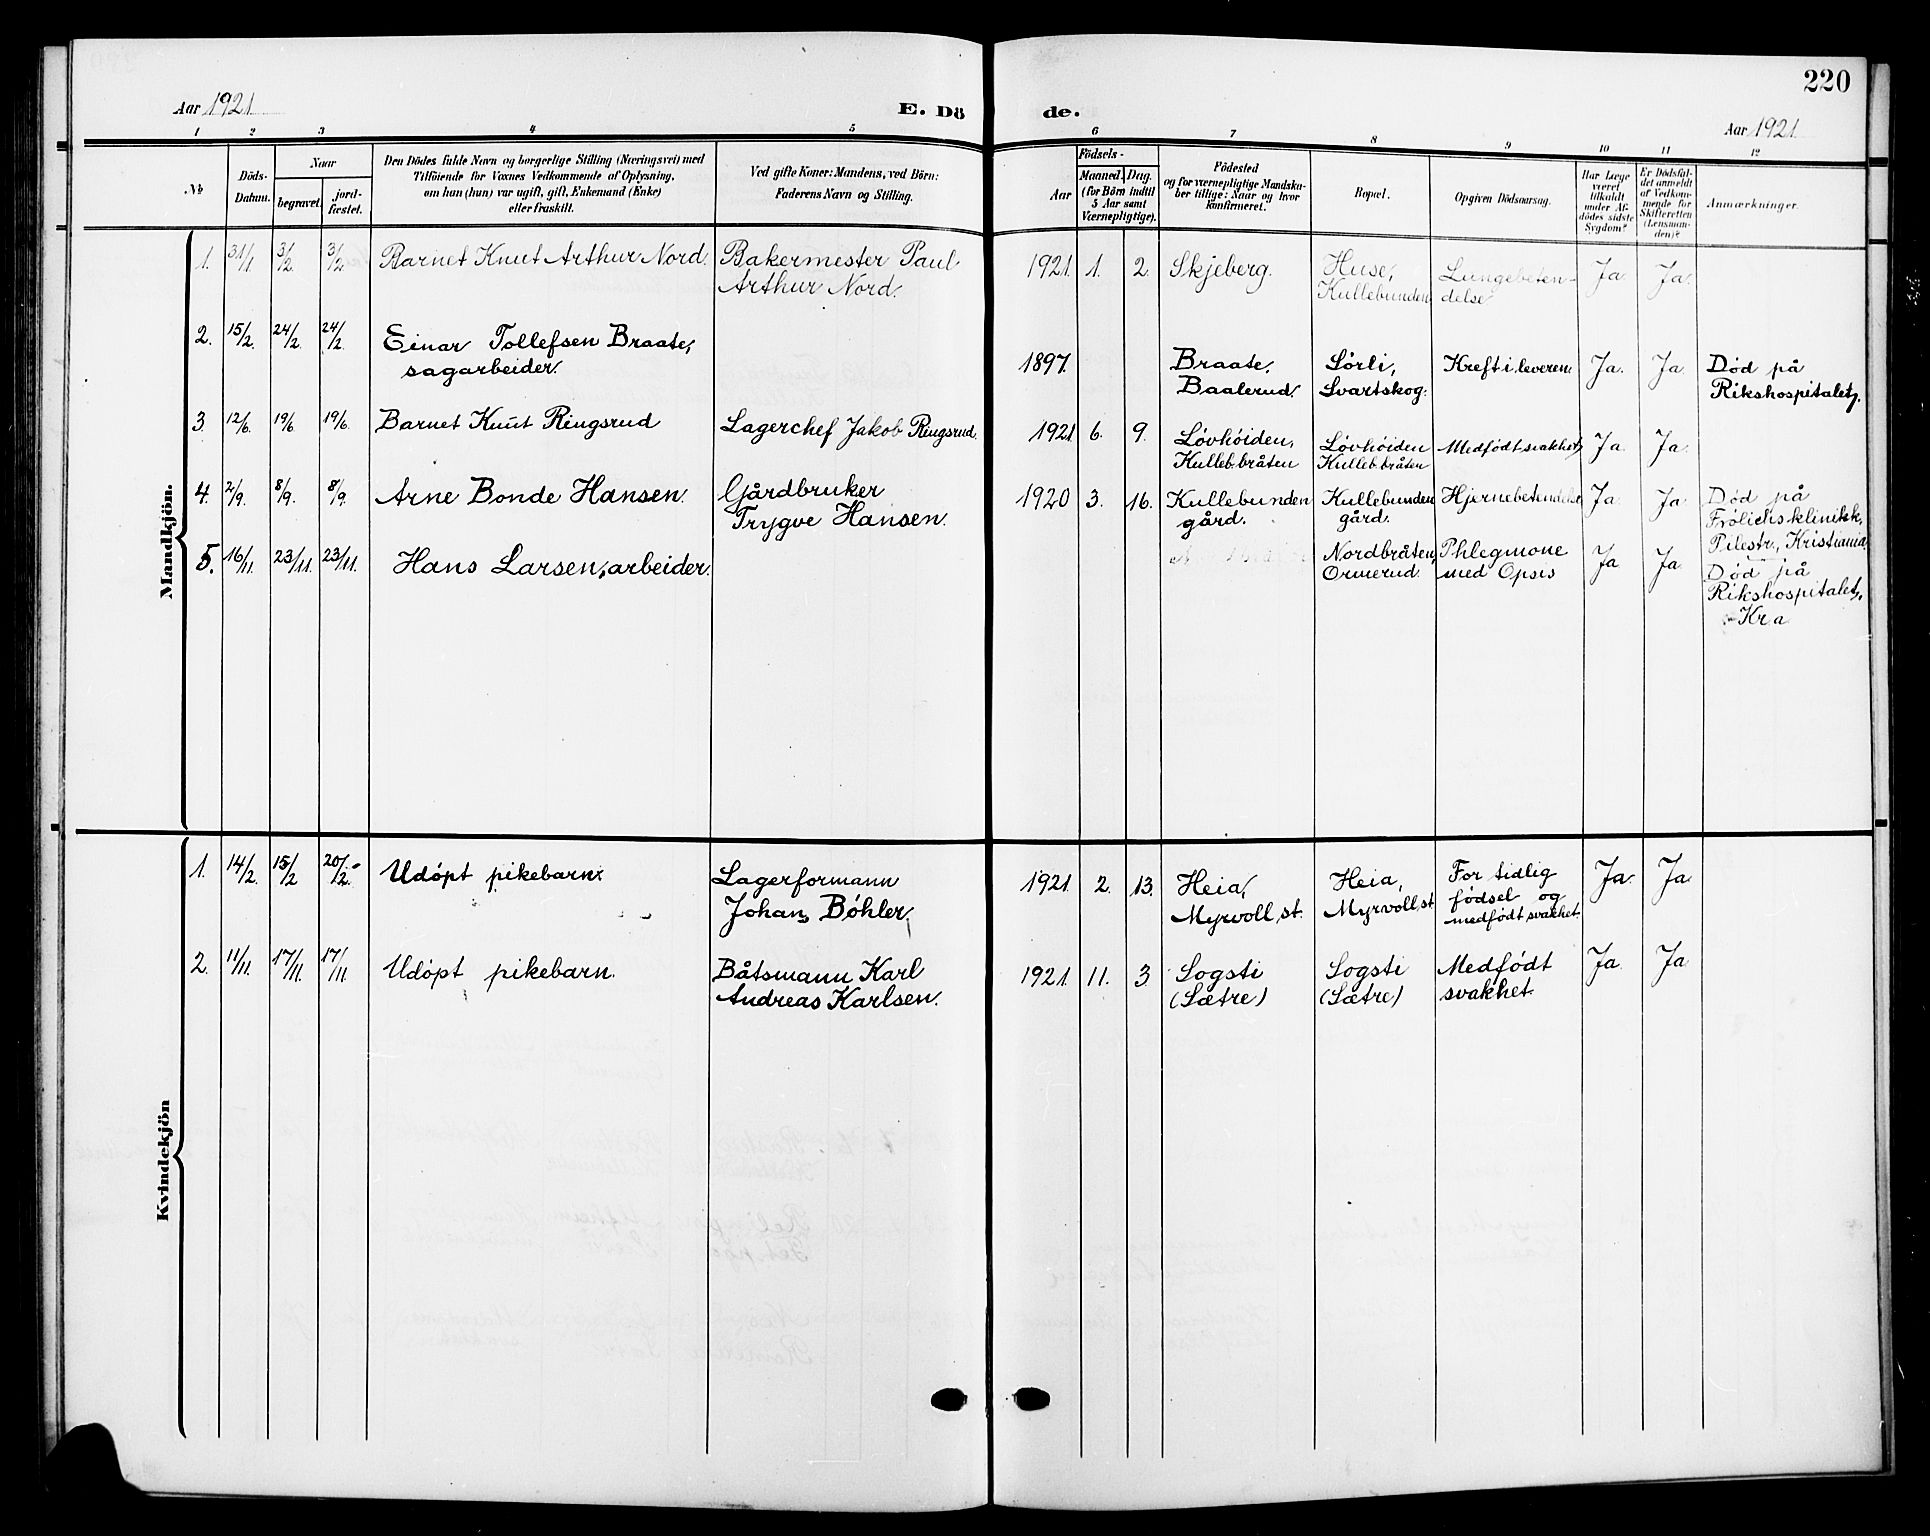 220
Aar 1921
E. Dö
de.
Aar 1921
1 2 3 4 5
6 7 8 9 10 11 12
№
Döds-
Datum.
Naar
begravet.
jord-
fæstet.
Den Dödes fulde Navn og borgerlige Stilling (Næringsvei) med
Tilföiende for Voxnes Vedkommende af Oplysning,
om han (hun) var ugift, gift, Enkemand (Enke)
eller fraskilt.
Ved gifte Koner: Mandens, ved Börn:
Faderens Navn og Stilling.
Födsels-
Aar
Maaned. Dag.
(for Börn indtil
5 Aar samt
Værnepligtige).
Födested
og for værnepligtige Mandska-
ber tillige: Naar og hvor
konfirmeret.
Bopæl.
Opgiven Dödsaarsag.
Har Læge
været
tilkaldt
under Af-
dödes sidste
Sygdom?
Er Dödsfal-
det anmeldt
af Vedkom-
mende for
Skifteretten
(Lensman-
den)?
Anmærkninger.
Mandkjön.
1. 31/1 3/2 3/2 Barnet Knut Arthur Nord. Bakermester Paul
Arthur Nord.
1921. 1. 2. Skjeberg. Huse, Kullebunden Lungebeten-
delse Ja Ja.
2. 15/2. 24/2. 24/2. Einar Tollefsen Braate,
sagarbeider.
1897. Braate, Baalerud. Lörli, Svartskog. Kreft i leveren Ja. Ja Død på
Rikshospitalet.
3. 12/6. 19/6 19/6. Barnet Knut Ringsrud Lagerchef Jakob Ringsrud.
1921 6. 9. Lövhöiden, Kulleb.bråten Lövhöiden Kulleb.bråten Medfødt svakhet Ja. Ja.
4. 2/9. 8/9. 8/9. Arne Bonde Hansen. Gårdbruker
Trygve Hansen.
1920 3. 16. Kullebunden gård. Kullebunden gård. Hjernebetendelse Ja. Ja Død på
Frölichs klinikk,
Pilestr., Kristiania
5. 16/11. 23/11. 23/11. Hans Larsen, arbeider.
Nordbråten, Ormerud. Phlegmone
med Opsis Ja Ja. Død på
Rikshospitalet,
Kr.a
Kvindekjön
1. 14/2. 15/2 20/2. Udöpt pikebarn. Lagerformann
Johans Böhler.
1921. 2. 13. Heia, Myrvoll st. Heia, Myrvoll st For tidlig
fødsel og
medfødt svakhet. Ja. Ja
2. 11/11. 17/11. 17/11. Udöpt pikebarn. Båtsmann Karl
Andreas Karlsen.
1921. 11. 3. Sogsti (Sætre) Sogsti (Sætre) Medfødt
svakhet. Ja. Ja